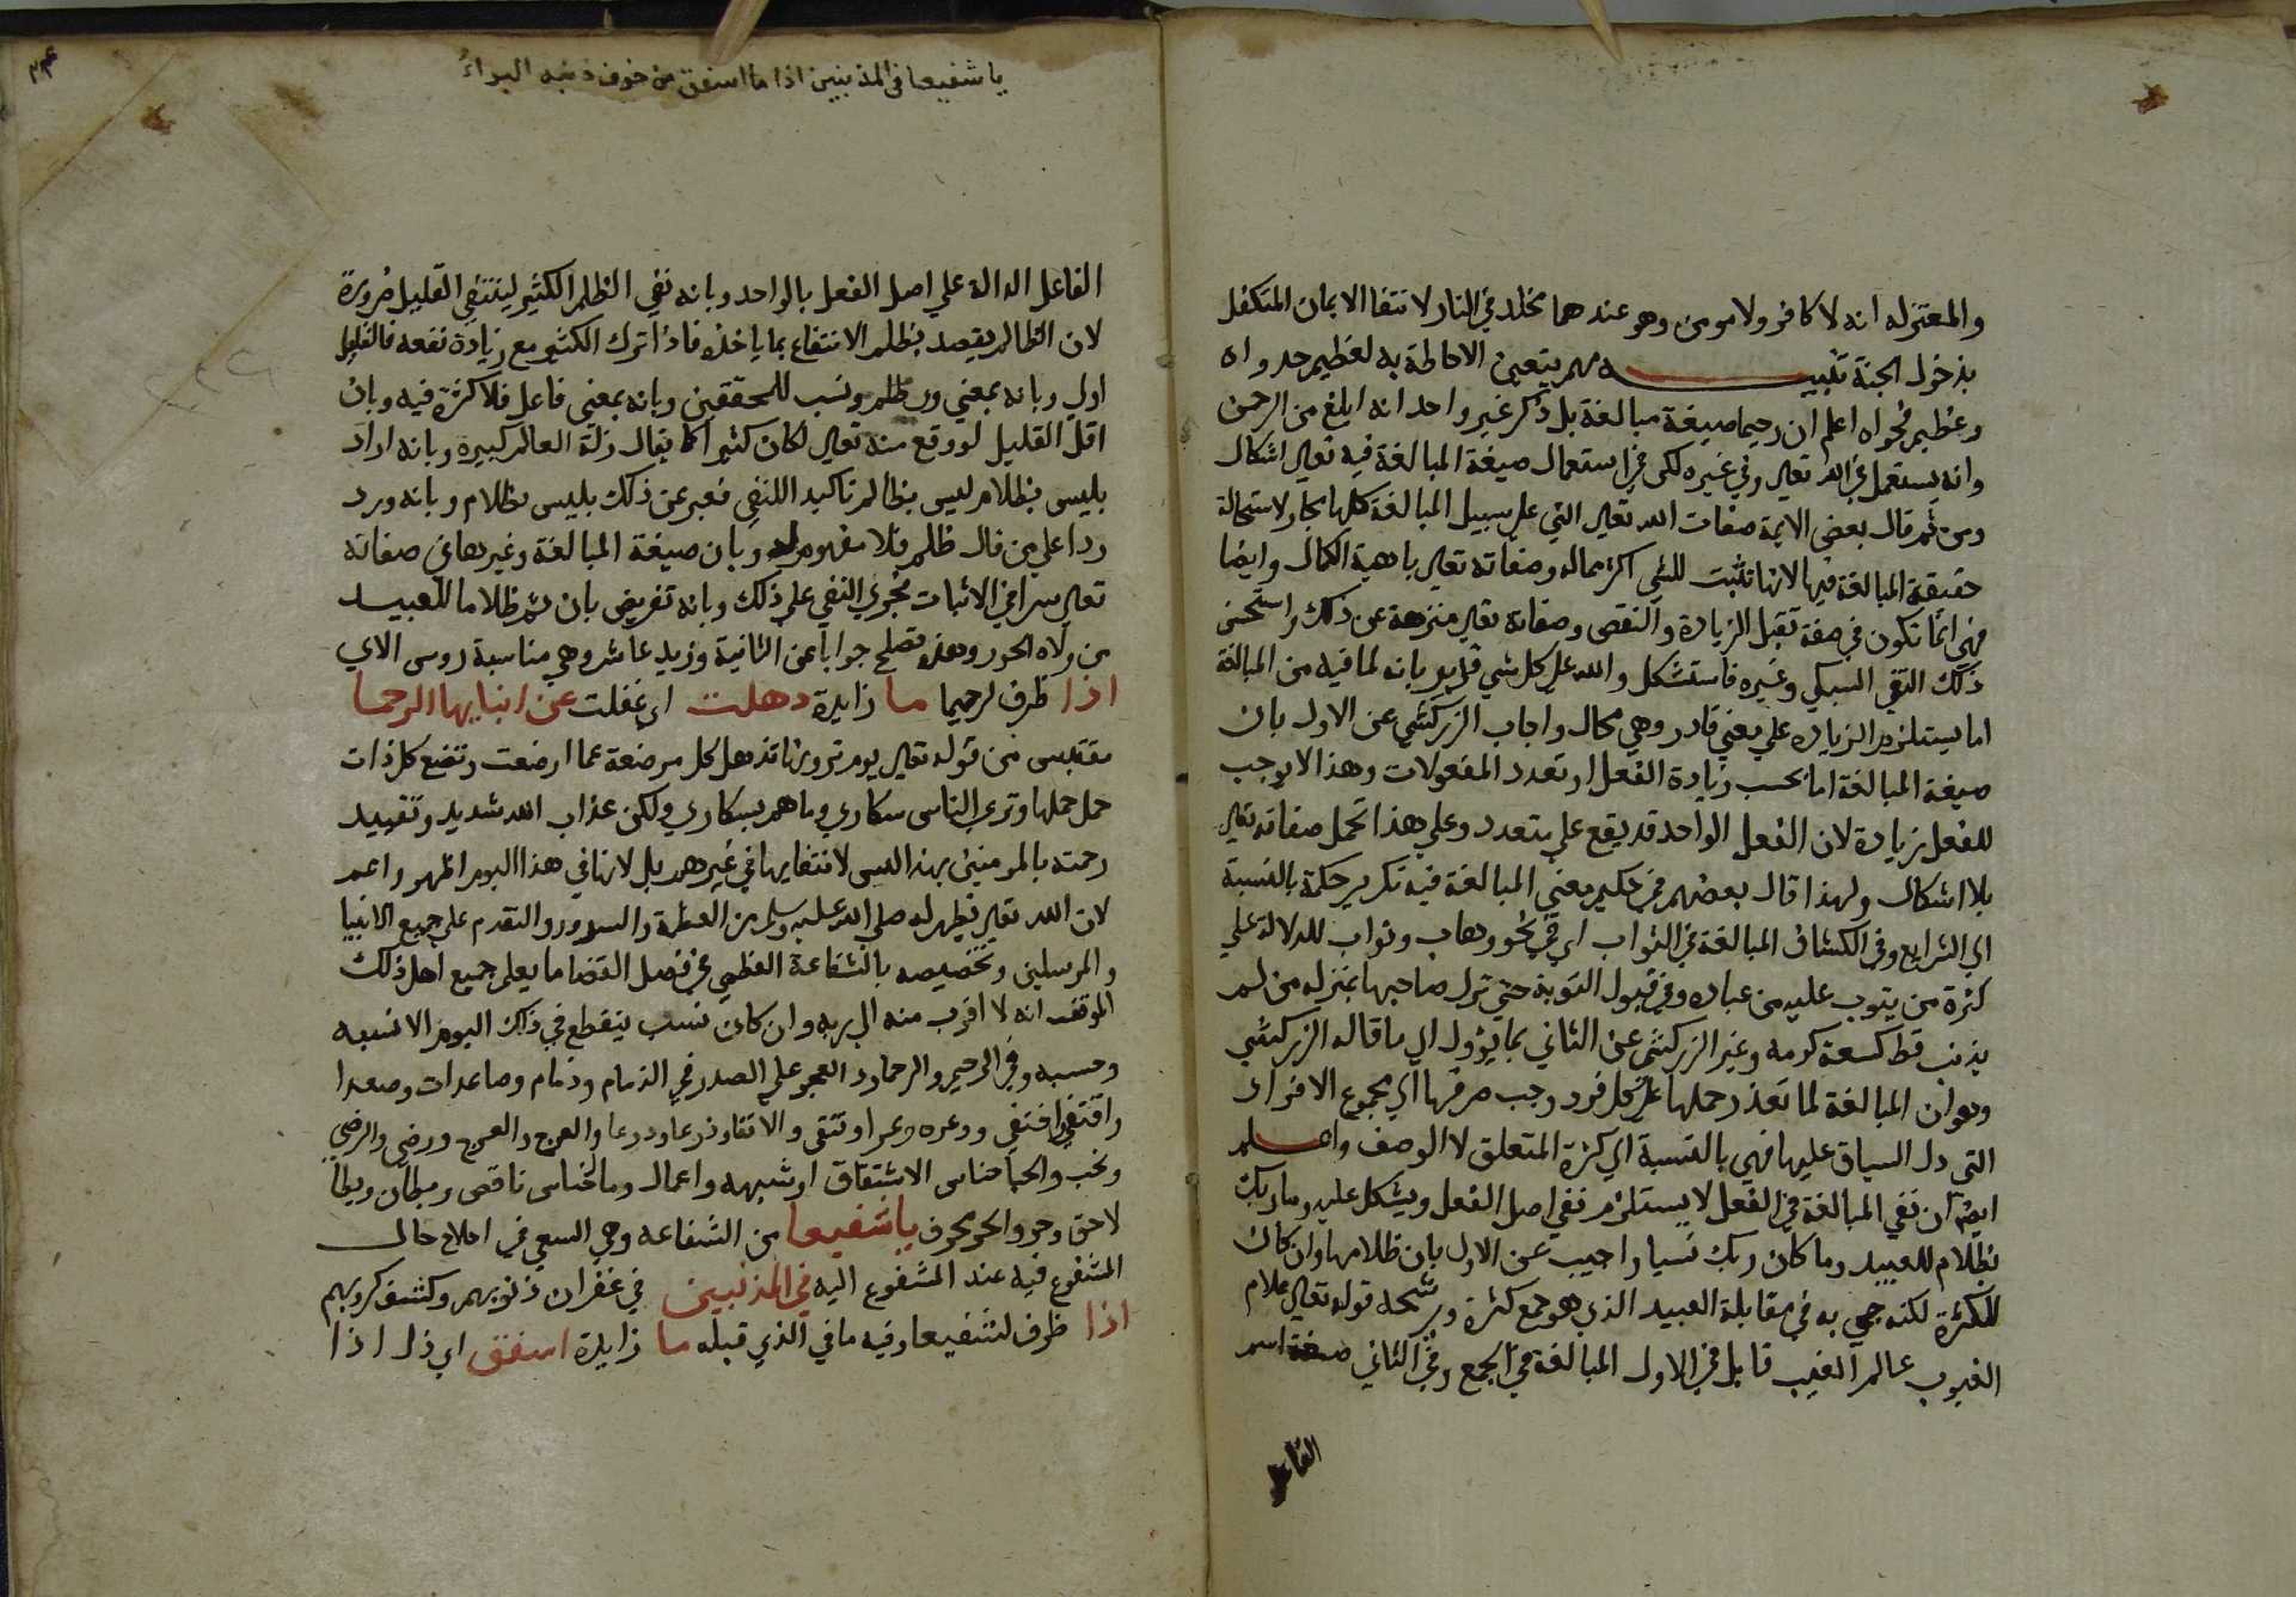 والمعتزله انه لا كافر ولا مومن وهو عندهما مخلد في النار لانتفا الايمان المتكفل
بدخول الجنة تنبيه مهم يتعين الاحاطة به لعظيم جدواه
وعظيم فحواه اعلم ان رحيما صيغة مبالغة بل ذكر غير واحد انه ابلغ من الرحمن
وانه يستعمل في الله تعالي وفي غيره لكن في استعمال صيغة المبالغة فيه تعالي اشكال
ومن ثم قال بعض الايمة صفات الله تعالي التي علي سبيل المبالغة كلها مجاز لاستحالة
حقيقة المبالغة فيها لانها تثبت للشي اكثر مماله وصفاته تعالي باهية الكمال وايضا
فهي انما تكون في صفة تقبل الزيادة والنقص وصفاته تعالي منزهة عن ذلك واستحسن
ذلك التقي السبكي وغيره فاستشكل والله علي كل شي قدير بانه لما فيه من المبالغة
اما يستلزم الزياده علي معني قادر وهي محال واجاب الزركشي عن الاول بان
صيغة المبالغة اما بحسب زيادة الفعل او تعدد المفعولات وهذا لا يوجب
للفعل زيادة لان الفعل الواحد قد يقع علي متعدد وعلي هذا تحمل صفاته تعالي
بلا اشكال ولهذا قال بعضهم في حكيم معني المبالغة فيه تكرير حكمة بالنسبة
الي الشرايع وفي الكشاف المبالغة في التواب اي في نحو وهاب وتواب للدلالة علي
كثرة من يتوب عليه من عباده وفي قبول التوبة حتي نزل صاحبها بمنزلة من لم
يذنب قط كسعة كرمه وغير الزركشي عن الثاني بما يؤول الي ما قاله الزركشي
وهو ان المبالغة لما تعذر حملها علي كل فرد وجب صرفها الي مجموع الافراد
التي دل السياق عليها فهي بالنسبة الي كثرة المتعلق لا الوصف واعلم
ايضا ان نفي المبالغة في الفعل لا يستلزم نفي اصل الفعل ويشكل عليه وما ربك
بظلام للعبيد وما كان ربك نسيا واجيب عن الاول بان ظلاما وان كان
للكثرة لكنه جي به في مقابلة العبيد الذي هو جمع كثرة ويرشحه قوله تعالي علام
الغيوب عالم الغيب قابل في الاول المبالغة في الجمع وفي الثاني صيغة اسم
الفاعل
يا شفيعا في المذنبين اذا ما اشفق من خوف ذنبه البراءُ
الفاعل الدالة علي اصل الفعل بالواحد وبانه نفي الظلم الكثير لينتفي القليل ضرورة
لان الظالم يقصد بظلم الانتفاع بما ياخذه فاذا ترك الكثير مع زيادة نفعه فالقليل
اولي وبانه بمعني وي ظلم ونسب للمحققين وبانه بمعني فاعل فلا كثرة فيه وبان
اقل القليل لو وقع منه تعالي لكان كثيرا كما يقال زلة العالم كبيرة وبانه اراد
بليس بظلام ليس بظالم تاكيدا للنفي فعبر عن ذلك بليس بظلام وبانه ورد
ردا علي من قال ظلم فلا مفهوم له وبان صيغة المبالغة وغيرها في صفاته
تعالي سوا في الاثبات فجري النفي علي ذلك وبانه تعريض بان ثم ظلاما للعبيد
من ولاه الجور وهذه تصلح جوابا عن الثانية وزيد عاشر وهي مناسبة روس الاي
اذا ظرف لرحيما ما زايدة ذهلت اي غفلت عن ابنايها الرحما
مقتبس من قوله تعالي يوم ترونها تذهل كل مرضعة عما ارضعت وتضع كل ذات
حمل حملها وتري الناس سكاري وما هم بسكاري ولكن عذاب الله شديد وتقييد
رحمته بالمومنين بهذا ليس لانتفايها في غيرهم بل لانها في هذا اليوم اظهر واعم
لان الله تعالي يظهر له صلي الله عليه وسلم من العظمة والسرور والتقدم علي جميع الانبيا
والمرسلين وتخصيصه بالشفاعة العظمي في فصل القضا ما يعلم جميع اهل ذلك
الموقف انه لا اقرب منه الي ربه وان كان نسب ينقطع في ذلك اليوم الا نسبه
وحسبه وفي الرحيم والرحما رد العجز علي الصدر في الذمام وذمام وصاعدات وصعدا
واقتفي وعراو تتقي والاتقا وذرعا ودرعا والعرج والعرج ورضي والرضي
وبحب والحبا جناس الاشتقاق او شبهه واعمال ومالجناس ناقص وبطان وبطا
لاحق وجر والجر محرف يا شفيعا من الشفاعه وهي السعي في اصلاح حال
المشفوع فيه عند المشفوع اليه في المذنبين في غفران ذنوبهم وكشف كروبهم
اذا ظرف لشفيعا وفيه ما في الذي قبله ما زايدة اشفق اي ذل اذا